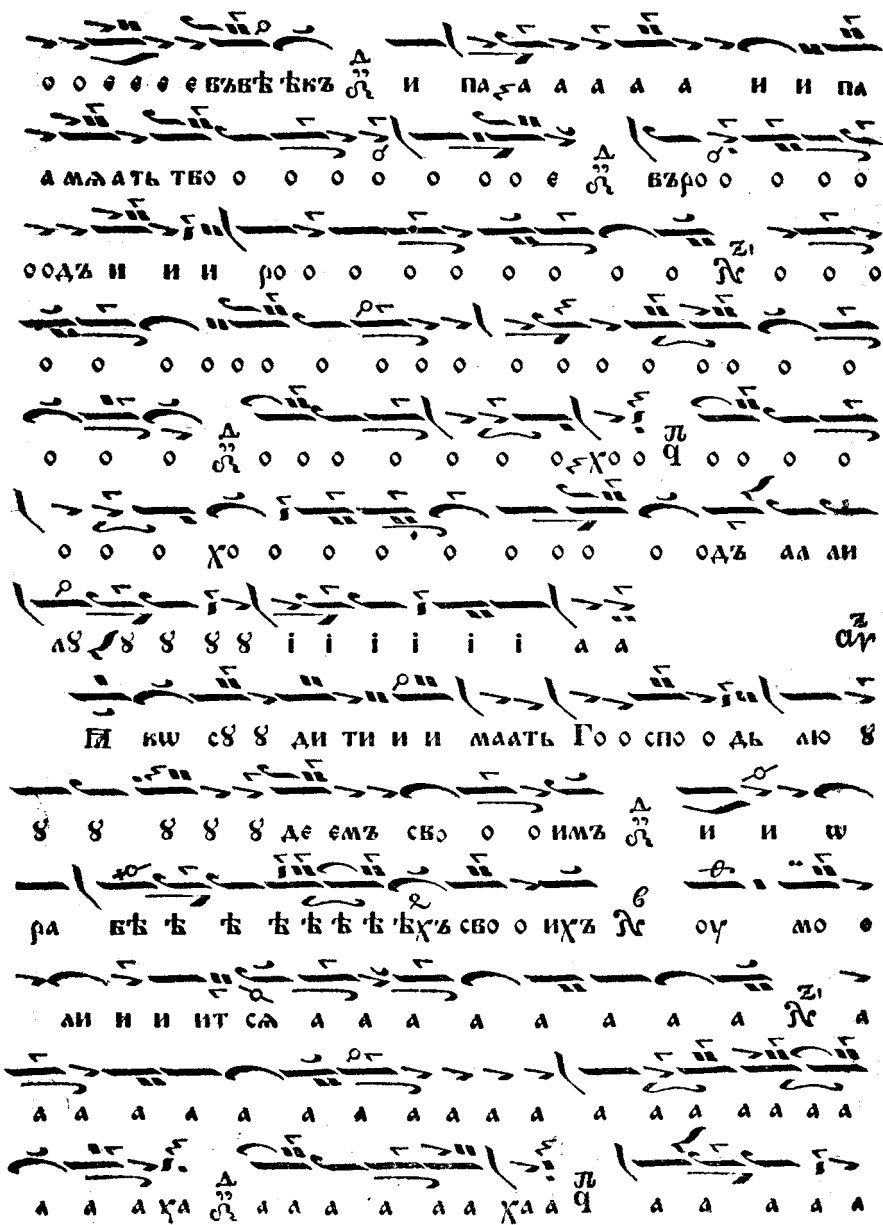 о о е е е е въвѣ ѣкъ и па а а а а а и и па
а мѧ а ть тво о о о о о о о е въро о о о о
о одъ и и и ро о о о о о о о о о о о
о о о о о о о о о о о о о о о о о о
о о о о о о о о о о хо о о о о о
о о о хо о о о о о о о о одъ ал ли
лꙋ ꙋ ꙋ ꙋ ꙋ і і і і і і а а
ꙗ кѡ сꙋ ꙋ ди ти и и маать Го о спо о дь лю ꙋ
ꙋ ꙋ ꙋ ꙋ ꙋ де емъ сво о о имъ и и ѡ
ра бѣ ѣ ѣ ѣ ѣ ѣ ѣ ѣхъ сво о ихъ оу мо е
ли и и ит сѧ а а а а а а а а а
а а а а а а а а а а а а а а а а а
а а а ха а а а а а а ха а а а а а